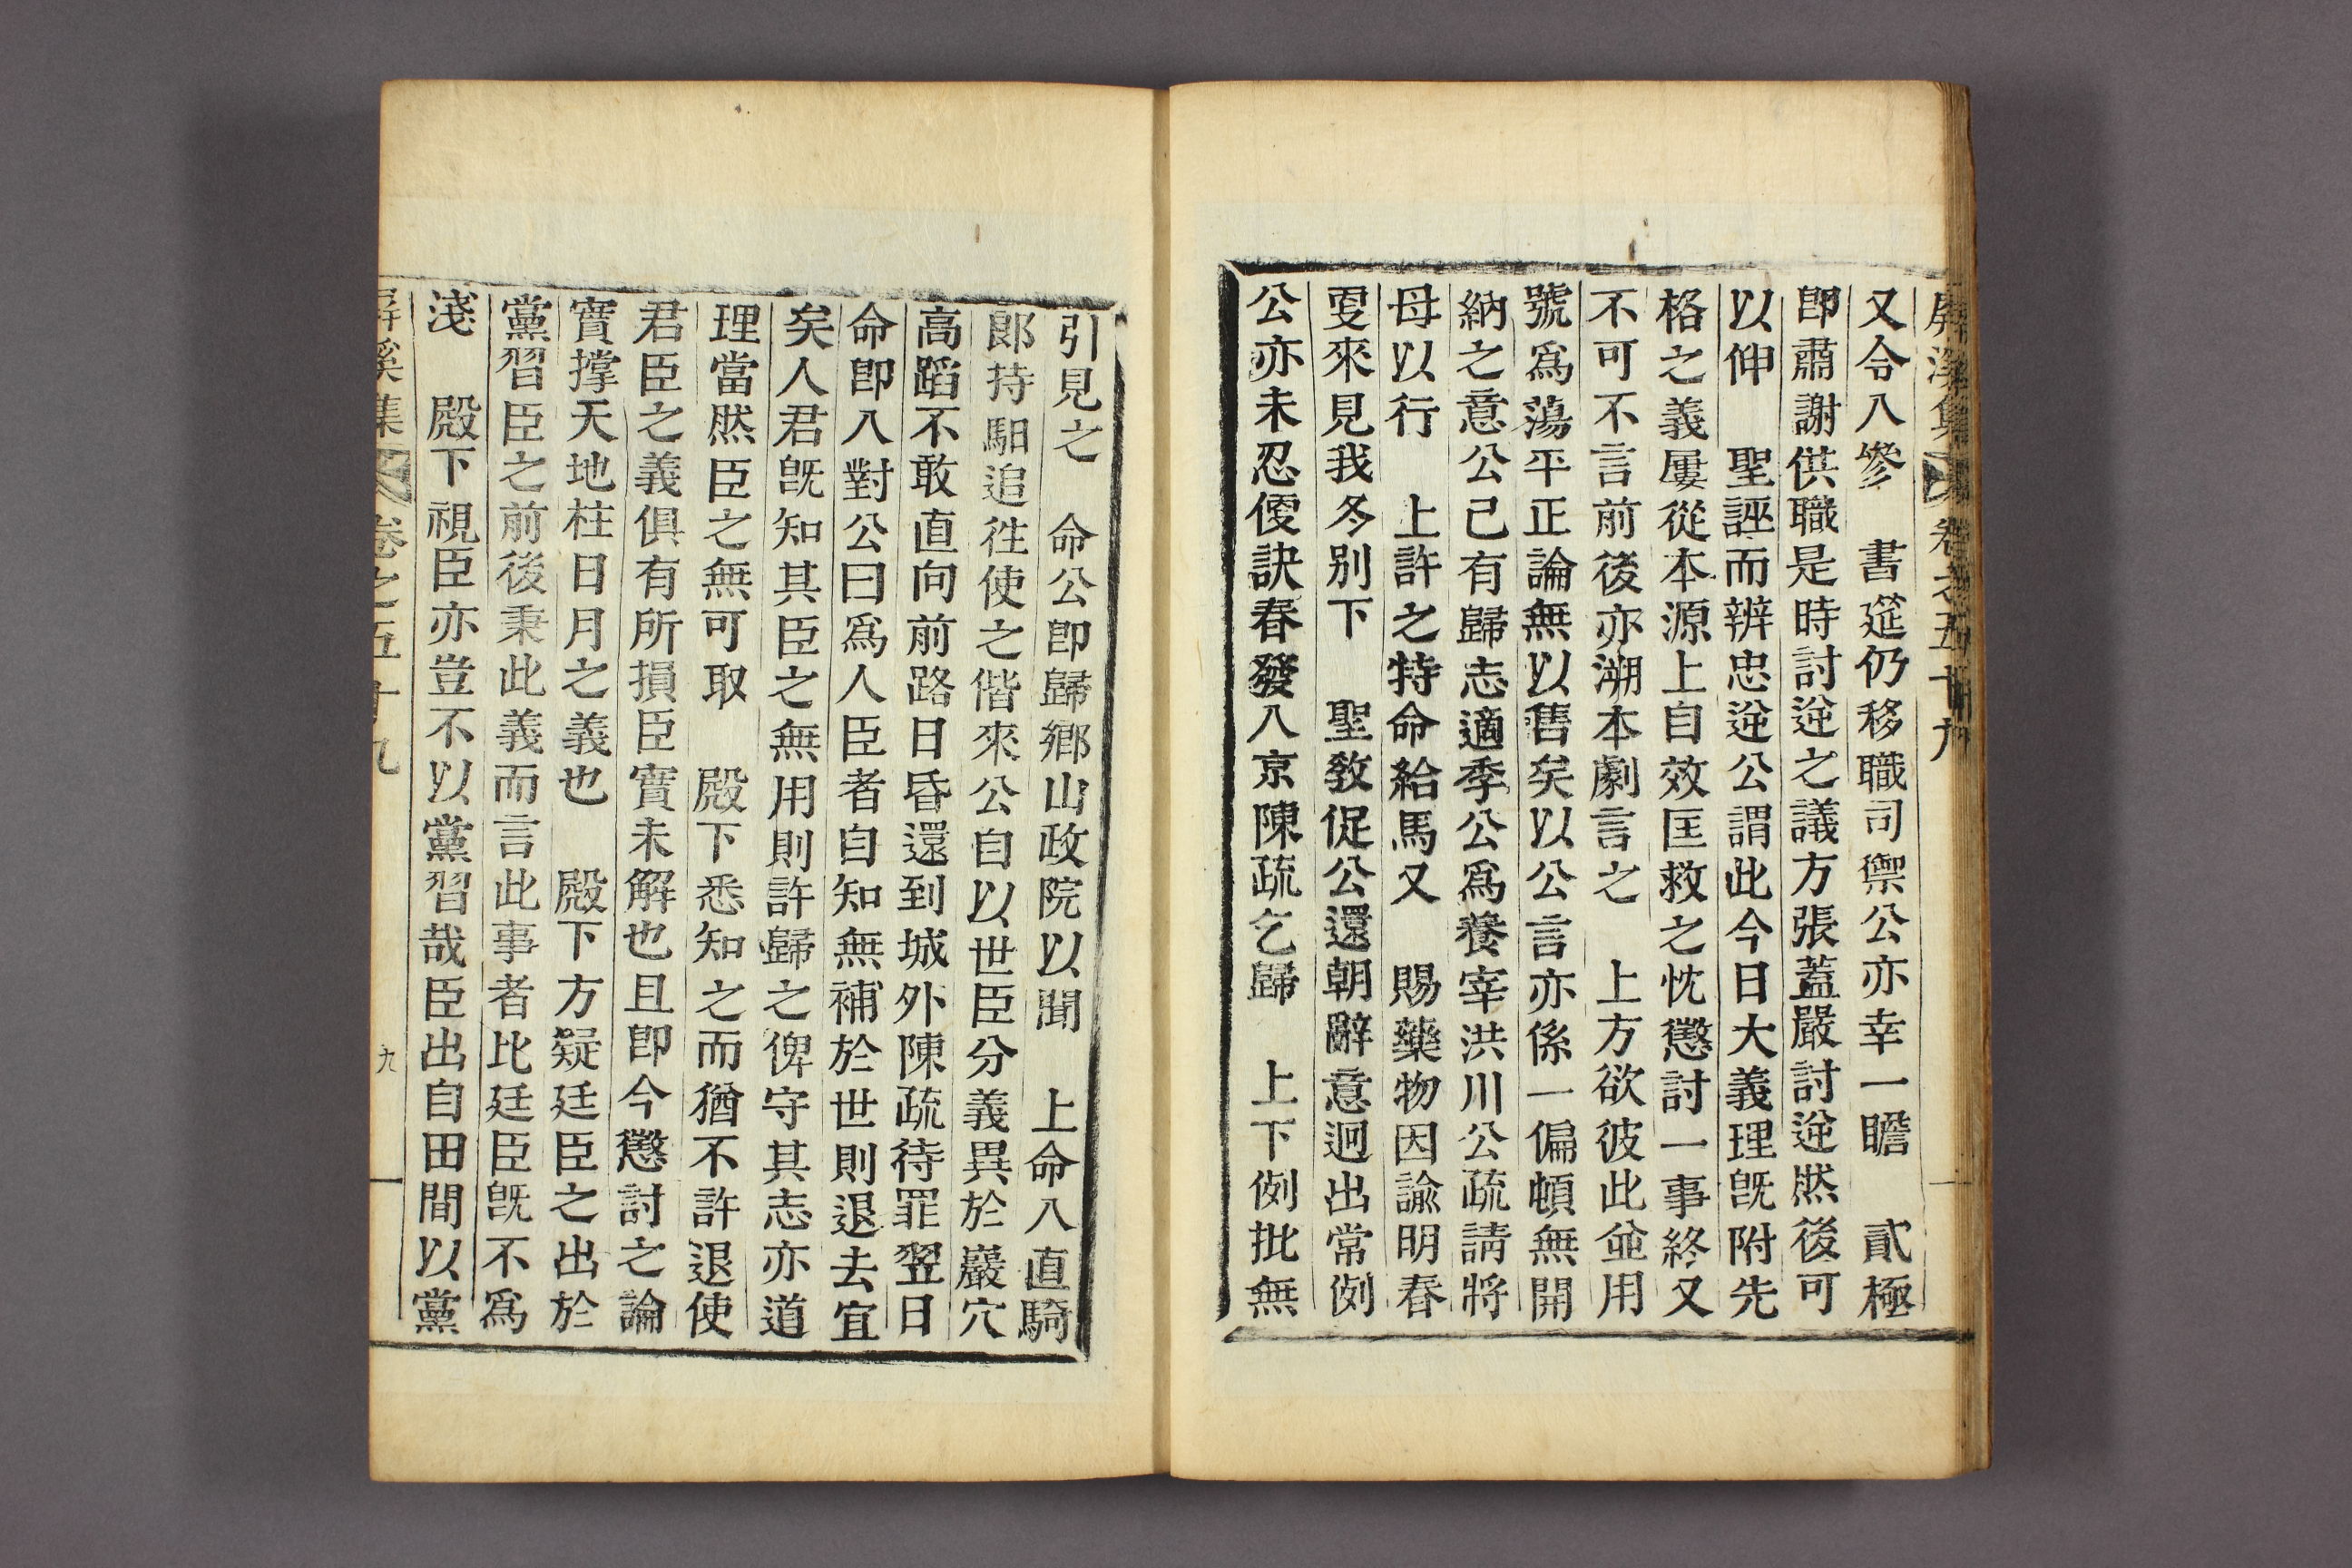 屛溪集 卷之五十九
又令入參 書筵仍移職司禦公亦幸一瞻 貳極
卽肅謝供職是時討逆之議方張蓋嚴討逆然後可
以伸 聖誣而辨忠逆公謂此今日大義理旣附先
格之義屢從本源上自效匡救之忱懲討一事終又
不可不言前後亦溯本劇言之 上方欲彼此並用
號爲蕩平正論無以售矣以公言亦係一偏頓無開
納之意公已有歸志適季公爲養宰洪川公疏請將
母以行 上許之特命給馬又 賜藥物因諭明春
更來見我冬別下 聖敎促公還朝辭意迥出常例
公亦未忍便訣春發入京陳疏乞歸 上下例批無
引見之 命公卽歸鄕山政院以聞 上命入直騎
郞持馹追徃使之偕來公自以世臣分義異於巖穴
高蹈不敢直向前路日昏還到城外陳疏待罪翌日
命卽入對公曰爲人臣者自知無補於世則退去宜
矣人君旣知其臣之無用則許歸之俾守其志亦道
理當然臣之無可取 殿下悉知之而猶不許退使
君臣之義俱有所損臣實未解也且卽今懲討之論
實撑天地柱日月之義也 殿下方疑廷臣之出於
黨習臣之前後秉此義而言此事者比廷臣旣不爲
淺 殿下視臣亦豈不以黨習哉臣出自田間以黨
屛溪集 卷之五十九 九